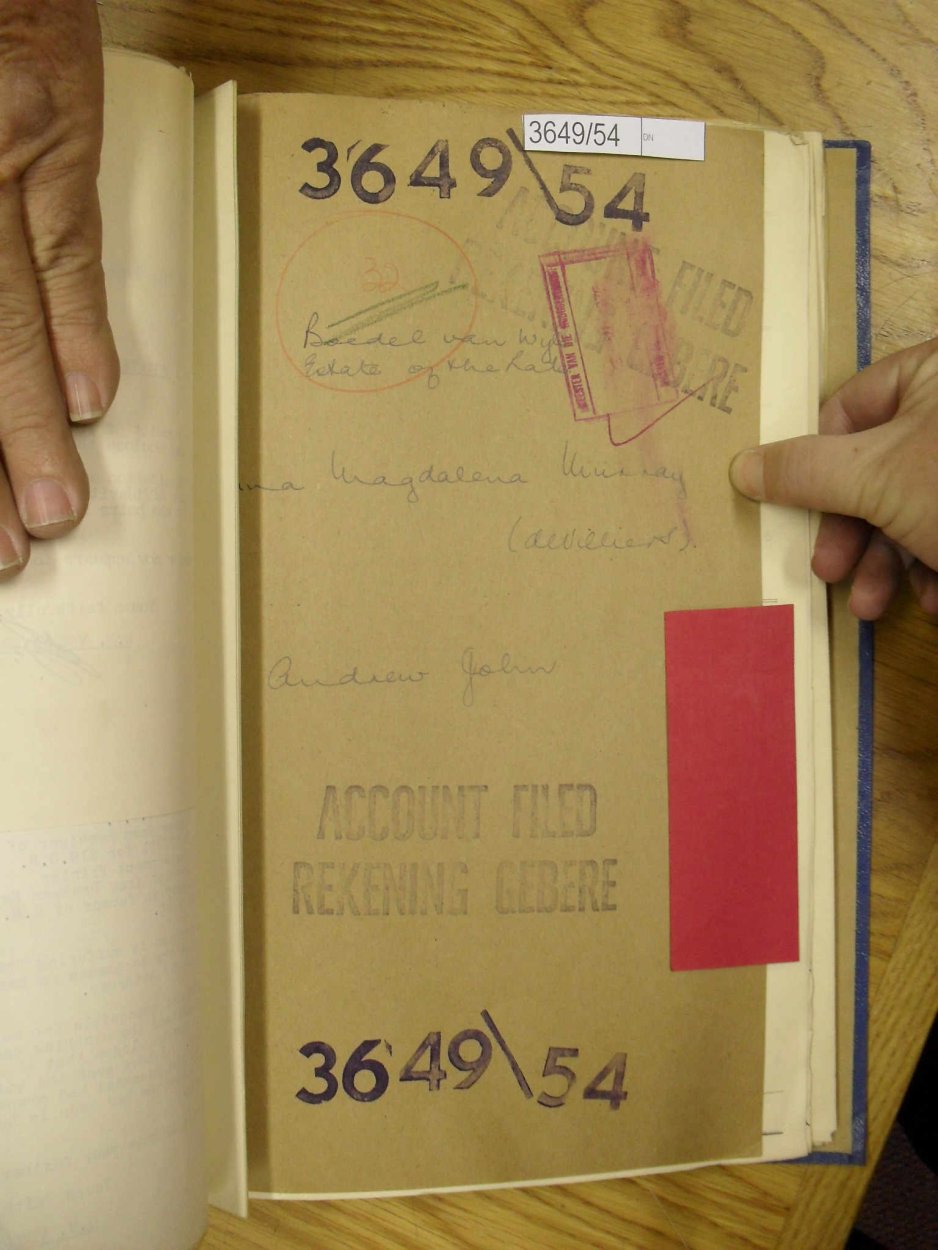 3649/54
3649\54
ACCOUNT FILED
REKENING GEBERE
32
Boedel van Wyle
Estate of the Late
MEESTER VAN DIE HOOGGEREGSHOF
Magdalena Murray
(deVilliers).
Andrew John
ACCOUNT FILED
REKENING GEBERE
3649\54